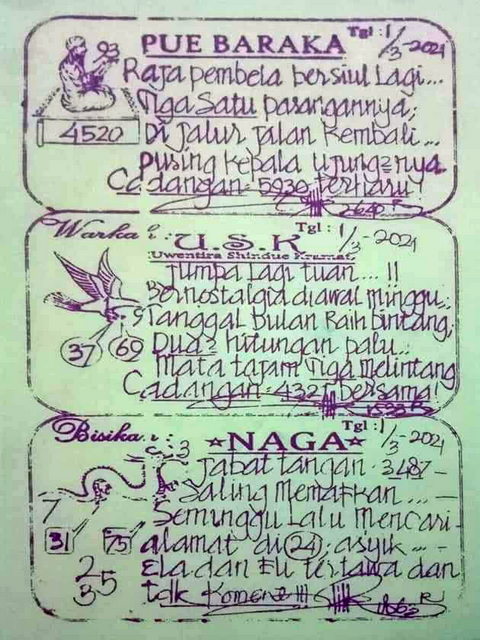 Tgl : 1/3-2021
PUE BARAKA
93
Raja pembela bersiul Lagi...
Tiga Satu pasangannya;
4520
Di jalur jalan Kembali...
pusing kepala ujung2nya.
Cadangan- 5930 terharu!
Warka :
U.S.K
Tgl : 1/3-2021
Uwentira Shindue Kramat
jumpa Lagi tuan... !!
Bernostalgia diawal minggu.
Tanggal bulan Raih bintang,
37 69
Dua2 hitungan palu..
Mata tajam Tiga Melintang
Cadangan-4321 bersama!
Bisika :
Tgl : 1/3-2021
NAGA
3
jabat tangan-3487-
Saling Memafkan... -
7
Seminggu Lalu Mencari-
31 75
alamat di (24); asyik...-
25
Ela dan Eli tertawa dan
35
tdk Komen2 !!!